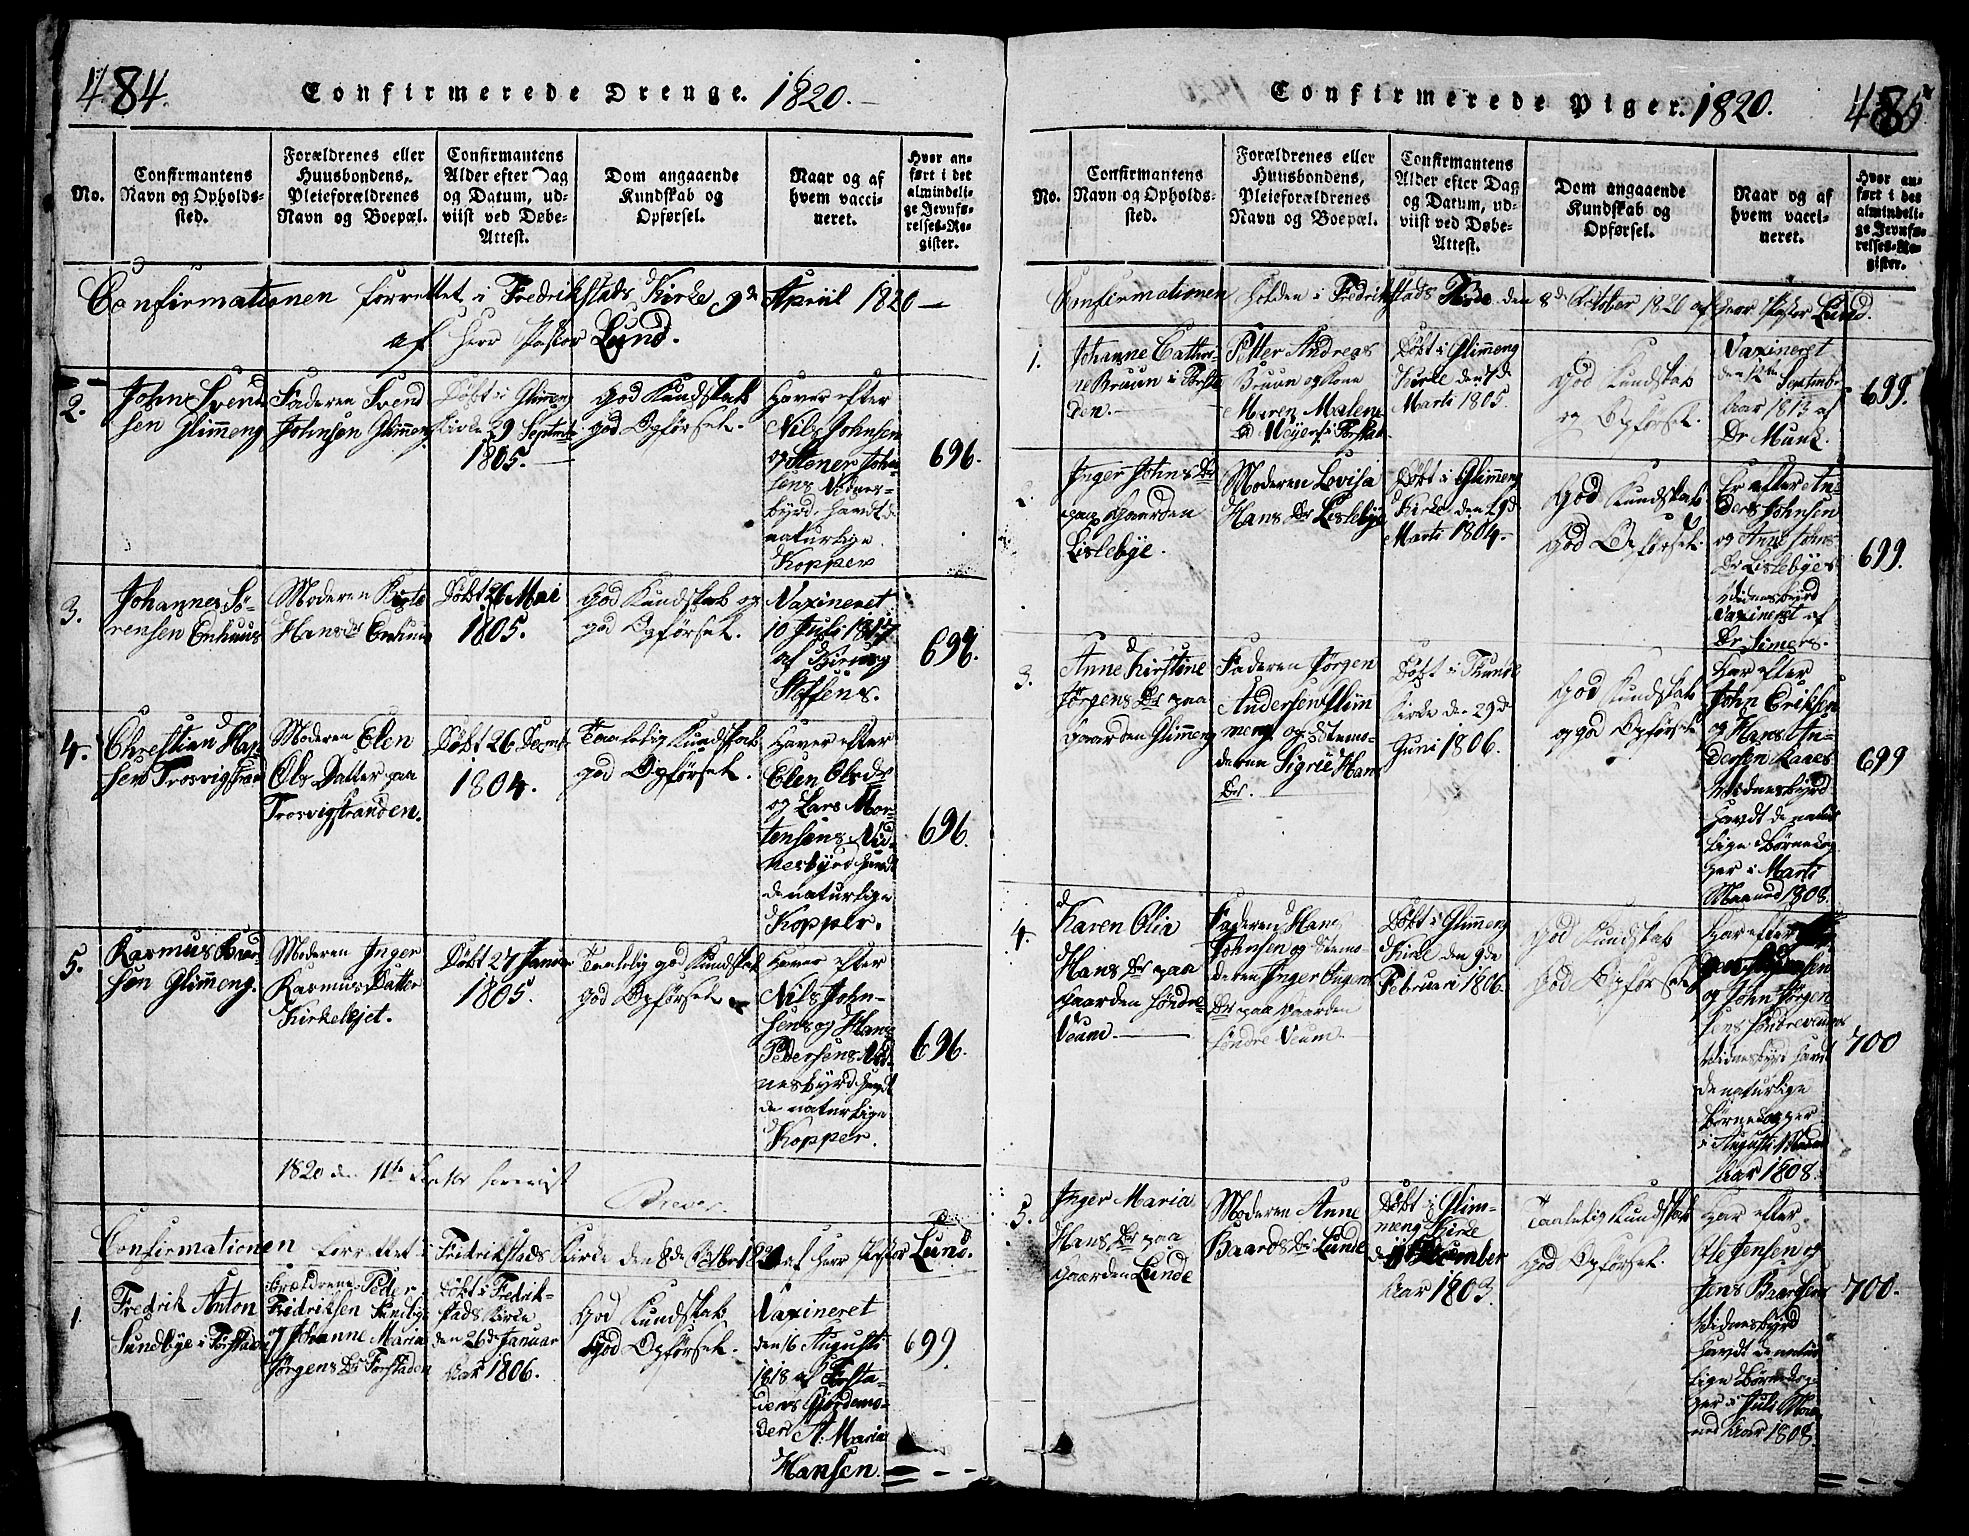 484.
Confirmerede Drenge. 1820.
No.
Confirmantens
Navn og Opholds-
sted.
Forældrenes eller
Huusbondens,
Pleieforældrenes
Navn og Boepæl.
Confirmantens
Alder efter Dag
og Datum, ud-
viist ved Døbe-
Attest.
Dom angaaende
Kundskab og
Opførsel.
Naar og af
hvem vacci-
neret.
Hvor an-
ført i det
almindeli-
ge Jevnfø-
relses-Re-
gister.
Confirmationen forrettet i Fredrikstads Kirke 9de April 1820 —
af Herr Pastor Lund.
2.
John Svend
sen Glimeng
Faderen Svend
Johnsen Glimeng
Døbt i Glimeng
Kirke 29 Septembr
1805.
God Kundskab
god Opførsel.
Haver efter
Nils Johnsen
og Stener John-
sens Vidnes-
byrd havdt de
naturlige
Kopper
696.
3.
Johannes Sø-
rensen Enhuus
Moderen
Hans Dr Enhuus
Døbt 26 Mai
1805.
God Kundskab og
god Opførsel.
Vaxineret
10 Juli 1817
af
Steffens.
696.
4.
Christian Han
sen Trosvigstran
Moderen Elen
Ols Datter paa
Trosvigstranden.
Døbt 26 Decmbr
1804.
Taalelig Kundskab
god Opførsel.
Haver efter
Elen Olsdr
og Lars Mor-
tensens Vid-
nesbyrd havdt
de naturlige
Kopper.
696.
5.
Rasmus
sen Glimeng.
Moderen Inger
Rasmus Datter
Kirkelejet.
Døbt 27 Januar
1805.
Taalelig god Kundskab
god Opførsel
Haver efter
Nils John-
sens og Hans
Pedersens Vid-
nesbyrd havdt
de naturlige
Kopper.
696.
1820 den 11te
Confirmationen forrettet i Fridrikstads Kirke den 8de Octbr 1820 af Herr Pastor Lund.
1.
Fredrik Anton
Sundbye i Forstaden
Forældrene Peder
Fridriksen Sundbye
og Johanne Maria
Jørgens Dr Forstaden
Døbt i Fredrik-
stads Kirke
den 26de Januar
Aar 1806.
God Kundskab
God Opførsel.
Vaxineret
den 16 Augusti
1818 af Forsta-
dens Gjordemo-
der A: Maria
Hansen.
699.
485
Confirmerede Piger. 1820.
No.
Confirmantens
Navn og Opholds-
sted.
Forældrenes eller
Huusbondens,
Pleieforældrenes
Navn og Boepæl.
Confirmantens
Alder efter Dag
og Datum, ud-
viist ved Døbe-
Attest.
Dom angaaende
Kundskab og
Opførsel.
Naar og af
hvem vacci-
neret.
Hvor an-
ført i det
almindeli-
ge Jevnfø-
relses-Re-
gister.
Confirmationen holden i Fredrikstads Kirke den 8de October 1820 af Herr Pastor Lund.
1.
Johanne Cathri-
ne Bruun i Forsta
den.
Petter Andreas
Bruun og Kone
Maren Malene
Meyer i Forstad
Døbt i Glimeng
Kirke den 7de
Marti 1805.
God Kundskab
og Opførsel.
Vaxineret
den 12te Septembr
Aar 1813 af
Dr Munk.
699.
2.
Inger Johns Dr
paa Gaarden
Lislebye.
Moderen Lovisa
Hans Dr Lislebye
Døbt i Glimeng
Kirke den 29de
Marti 1804.
God Kundskab
God Opførsel.
Er efter An-
ders Johnsen
og Anne Johns
Dr Lislebyes
Vidnesbyrd
Vaxineret af
Dr Simers.
699.
3.
Anne Kirstine
Jørgens Dr paa
Gaarden Glimeng
Faderen Jørgen
Andersen Glim
meng og Stemo-
deren Sigrie Hans
Dr.
Døbt i Thunøe
Kirke den 29de
Juni 1806.
God Kundskab
og god Opførsel
Har efter
John Eriksen
og Hans An-
dersen Kaaes
Widnesbyrd
havdt de natur
lige Børnekop
per i Marti
Maaned 1808.
699
4.
Karen Olia
Hans Dr paa
Gaarden Søndre
Veum
Faderen Hans
Johnsen og Stemo-
deren Inger
Dr paa Gaarden
Søndre Veum
Døbt i Glimeng
Kirke den 9de
Februari 1806
God Kundskab
God Opførsel
Har efter
og John Jørgen
sens Søndre Veums
Widnesbyrd havdt
de naturlige
Børnekopper
i Augusti Maaned
Aar 1808.
700
5.
Inger Maria
Hans Dr paa
Gaarden Lunde
Moderen Anne
Baards Dr Lunde
Døbt i Glim-
meng Kirke
December
Aar 1803.
Taalelig Kundskab
God Opførsel.
Har efter
Ole Jensen og
Jens Baardsens
Widnesbyrd
havdt de natur
lige Børnekop-
per i Juli Maa-
ned Aar 1808.
700.